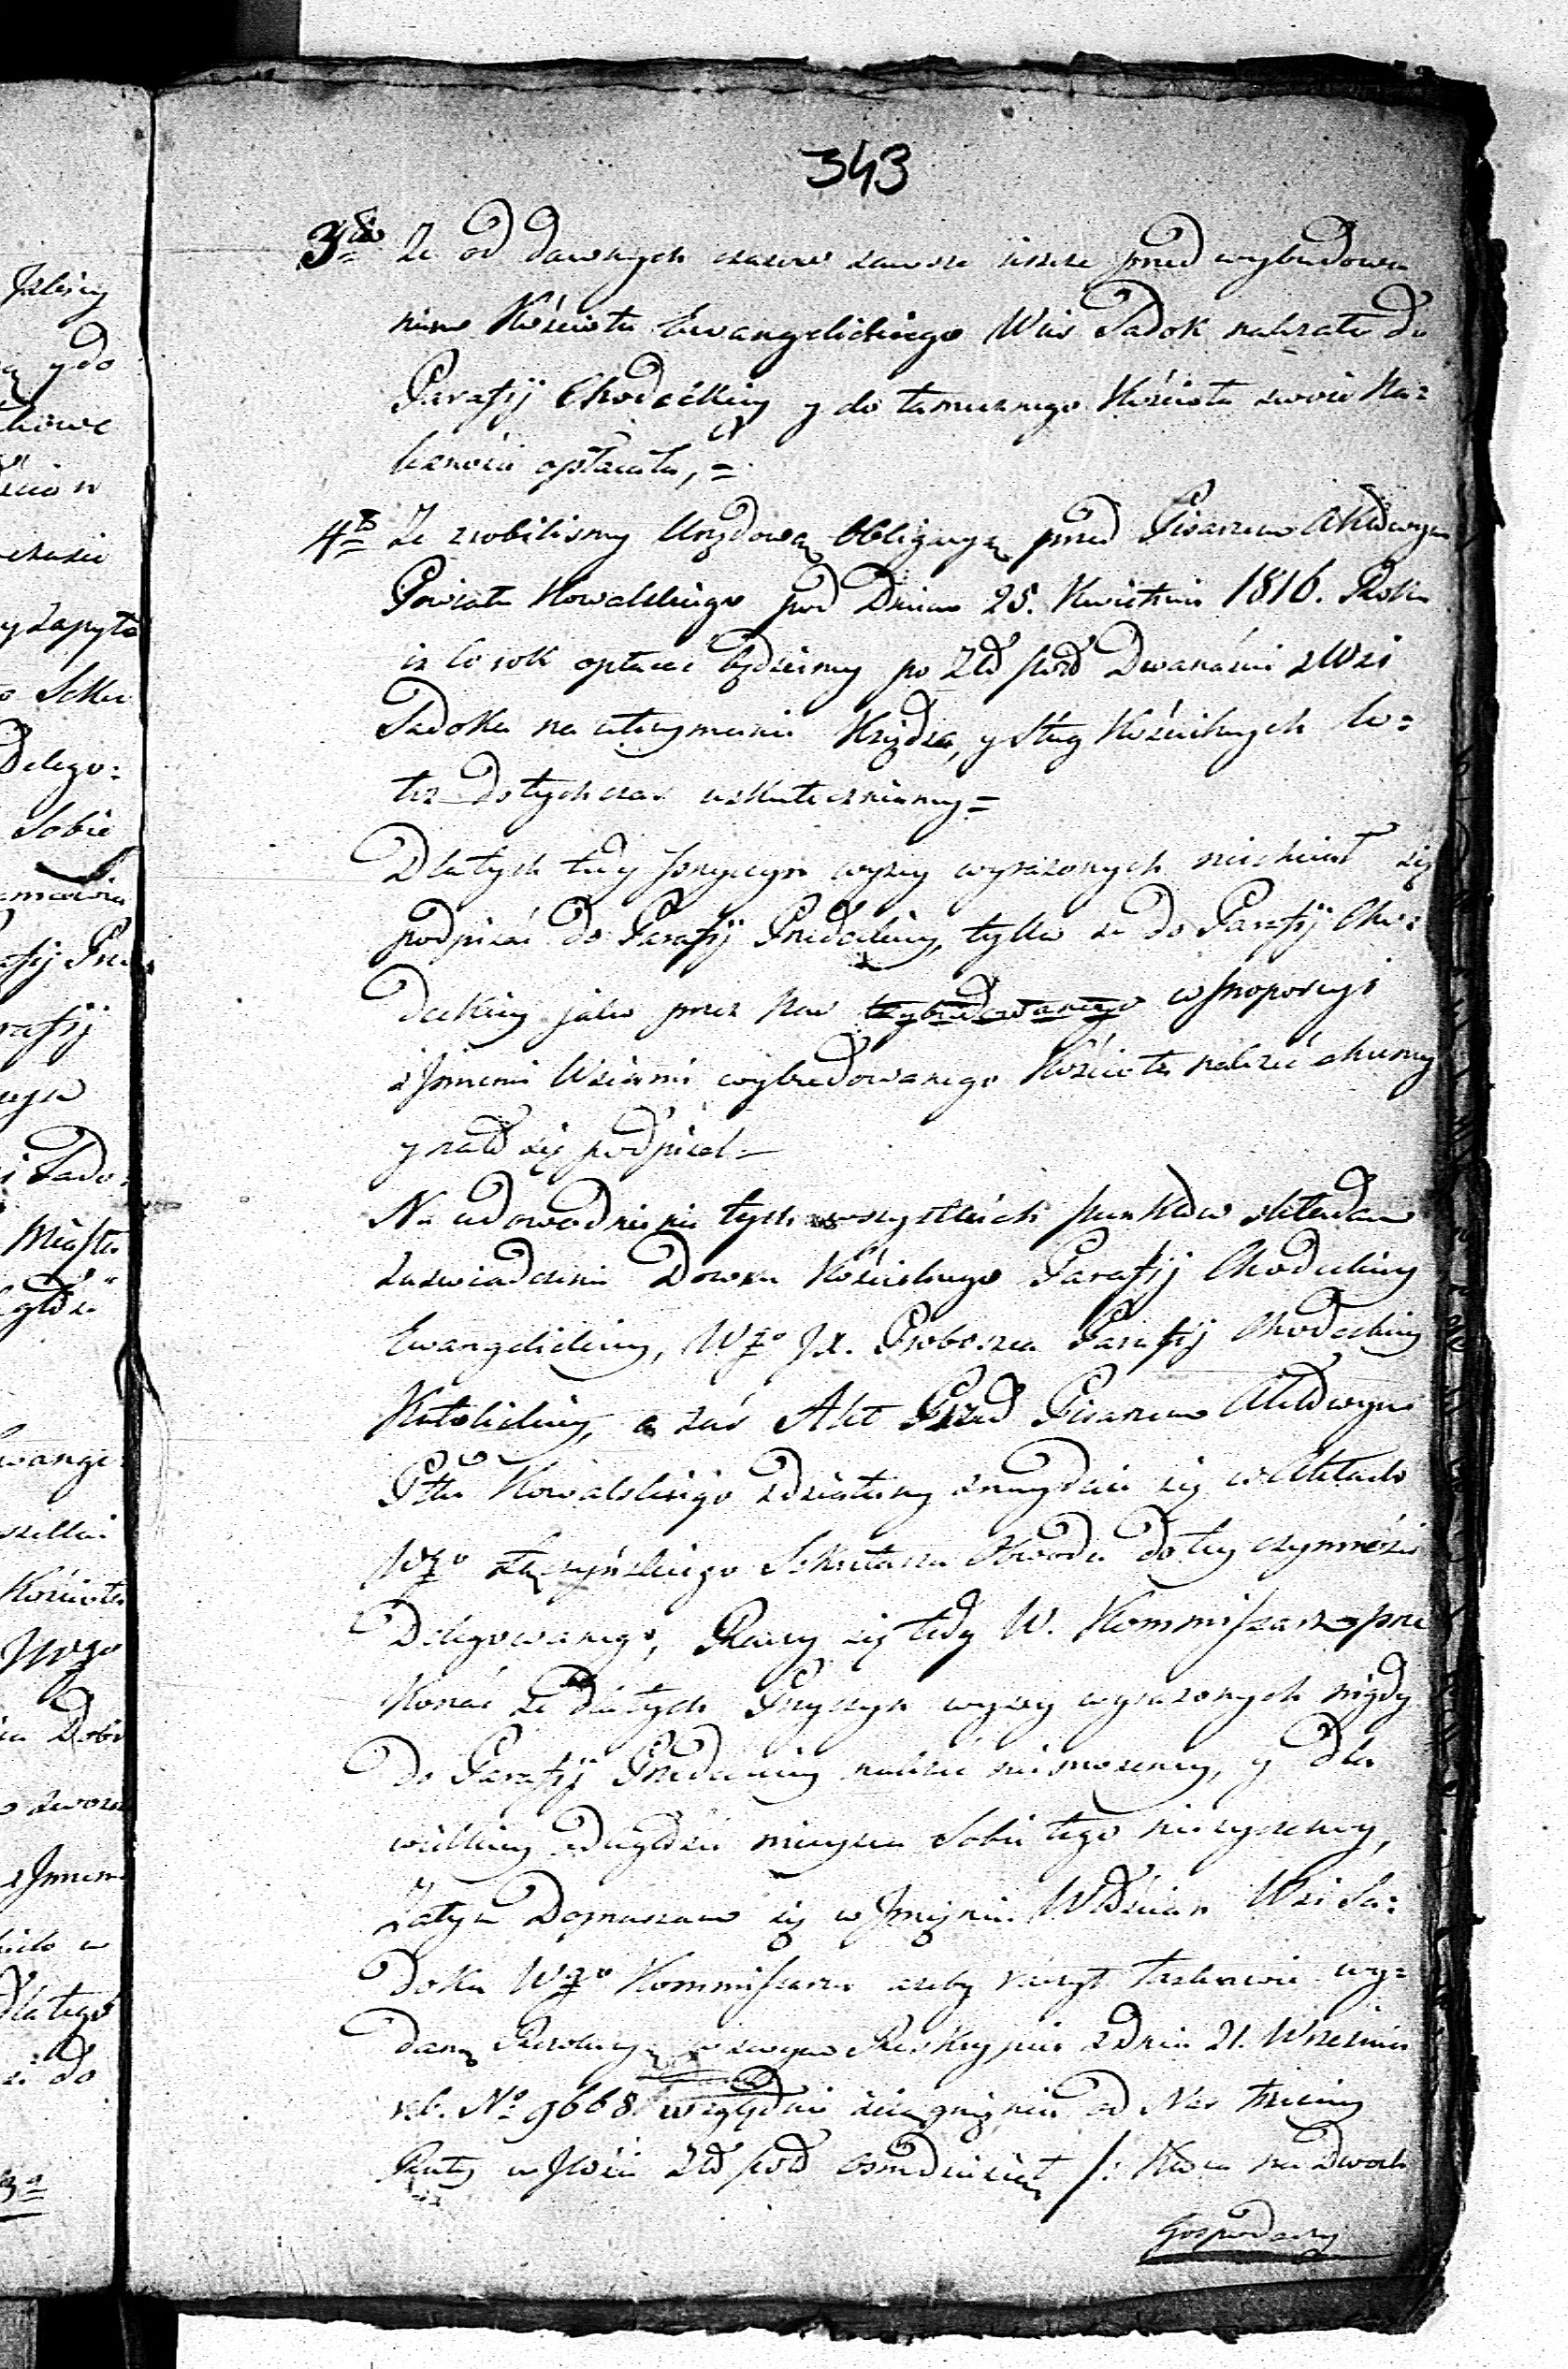 343
3tio Że od dawnych czasów zawsze ieszcze przed wybudowa
niem Kościoła Ewangelickiego Wieś Sadok należała do
Parafij Chodeckiey y do tamecznego Kościoła swoie Na=
leżności opłacała, =
4to Że zrobilismy Urzędową Obligacyą przed Pisarzem Aktowym
Powiatu Kowalskiego pod Dniem 25. Kwietnia 1816. Roku
iż co rok opłacać będziemy po Złł pols Dwanaście z Wsi
Sadoka na utrzymanie Księdza, y sług Kościelnych co=
też dotychczas uskuteczniamy =
Dla tych tedy przyczyn wyżey wyrażonych niechciał się
podpisać do Parafij Przedeckiey, tylko że do Parafij Cho=
deckiey jako przez Nas wybudowanego w proporcyi
z Jnnemi Wsiami wybudowanego Kościoła należeć chcemy
y nato się podpisał –
Na udowodnienie tych wszystkich punktów składam
zaświadczenie Dozoru Kościelnego Parafij Chodeckiey
Ewangelickiey, Wgo Jx. Proboszcza Parafij Chodeckiey
Katolickiey, a zaś Akt Przed Pisarzem Aktowym
Pttu Kowalskiego zdziałany znayduie się w Aktach
Wgo Sekretarza Obwodu do tey czynności
Delegowanego, Raczy się tedy W. Kommissarz prze
konać że dla tych Przyczyn wyżey wyrażonych nigdy
do Parafij Przedeckiey należeć niemożemy, y dla
wielkiey odległości mieysca Sobie tego nieżyczemy,
Zatym Dopraszam się w Jmieniu Włościan Wsi Sa=
doka Wgo Kommissarza ażeby raczył łaskawie wy=
daną Rezolucyą w swym Reskrypcie z Dnia 21. Września
r.b. No 9668 względnie ściągnienia od Nas trzeciey
Raty w Jlości Złł pols Osmdziesiąt /: która na Dwoch
Gospodarzy